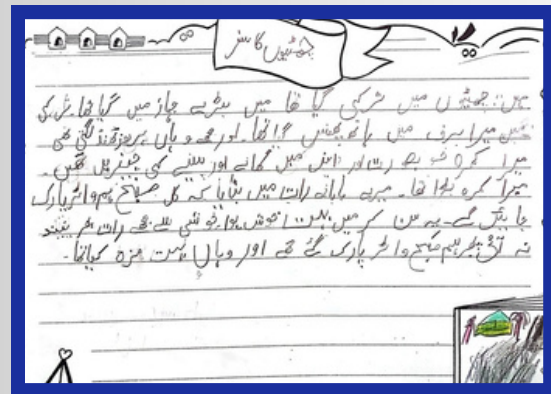 چھٹیوں کا سفر
میں چھٹیوں میں ترکی گیا تھا میں بڑے جہاز میں گیا تھا ترکی
میں میرا برف میں ہاتھ پھنس گیا تھا۔ اور مجھے وہاں بہت ٹھنڈ لگتی تھی
میرا کمرہ اور اس میں کھانے اور پینے کی چیزیں تھیں۔
میرا کمرہ بڑا تھا۔ میرے بابا نے رات میں بتایا کہ کل صبح ہم واٹر پارک
جائیں گے۔ یہ سن کر میں بہت خوش ہوا۔ خوشی سے مجھے رات بھر نیند
نہ آئی پھر ہم صبح واٹر پارک گئے تھے اور وہاں بہت مزہ کیا تھا۔